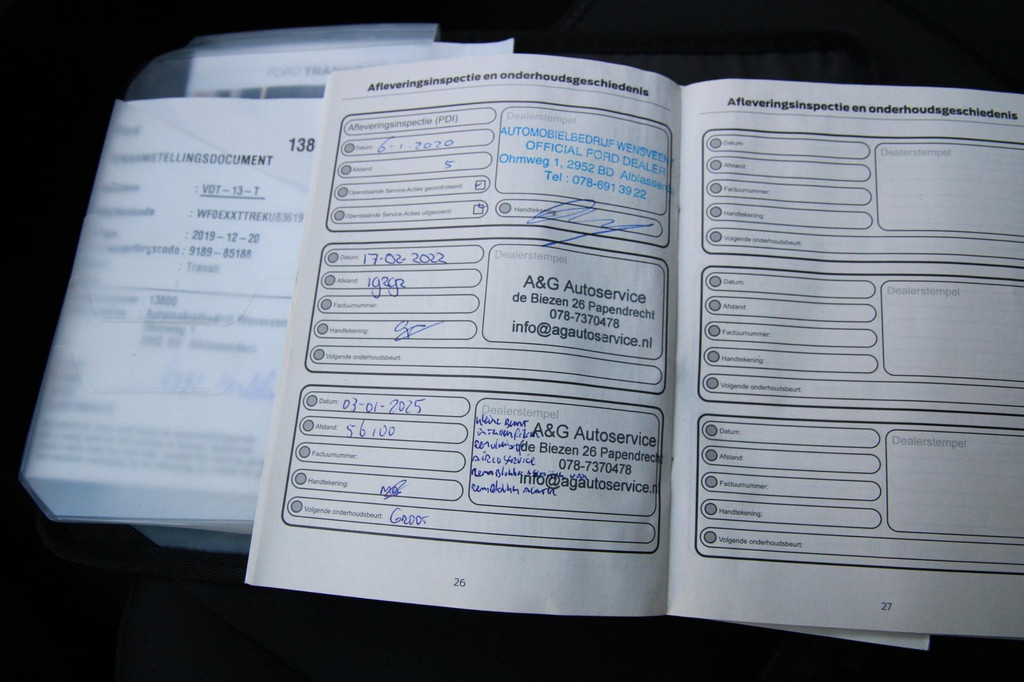 FORD TRANSIT
138
VDT-13-T
: WF0EXXTTREKU83619
: 2019-12-20
: 9189-85188
: Transit
: 13800
Afleveringsinspectie en onderhoudsgeschiedenis
Afleveringsinspectie (PDI)
Datum: 6-1-2020
Afstand: 5
Openstaande Service-Acties gecontroleerd:
Openstaande Service-Acties uitgevoerd:
Dealerstempel
AUTOMOBIELBEDRIJF WENSVEEN
OFFICIAL FORD DEALER
Ohmweg 1, 2952 BD Alblasser
Tel : 078-691 39 22
Handtekening:
Datum: 17-02-2022
Afstand: 19292
Factuurnummer:
Handtekening:
Volgende onderhoudsbeurt:
Dealerstempel
A&G Autoservice
de Biezen 26 Papendrecht
078-7370478
info@agautoservice.nl
Datum: 03-01-2025
Afstand: 56100
Factuurnummer:
Handtekening:
Volgende onderhoudsbeurt: Groot
Dealerstempel
Kleine Beurt
interieurfilter
Aircoservice
A&G Autoservice
de Biezen 26 Papendrecht
078-7370478
info@agautoservice.nl
26
Afleveringsinspectie en onderhoudsgeschiedenis
Datum:
Afstand:
Factuurnummer:
Handtekening:
Volgende onderhoudsbeurt:
Dealerstempel
Datum:
Afstand:
Factuurnummer:
Handtekening:
Volgende onderhoudsbeurt:
Dealerstempel
Datum:
Afstand:
Factuurnummer:
Handtekening:
Volgende onderhoudsbeurt:
Dealerstempel
27